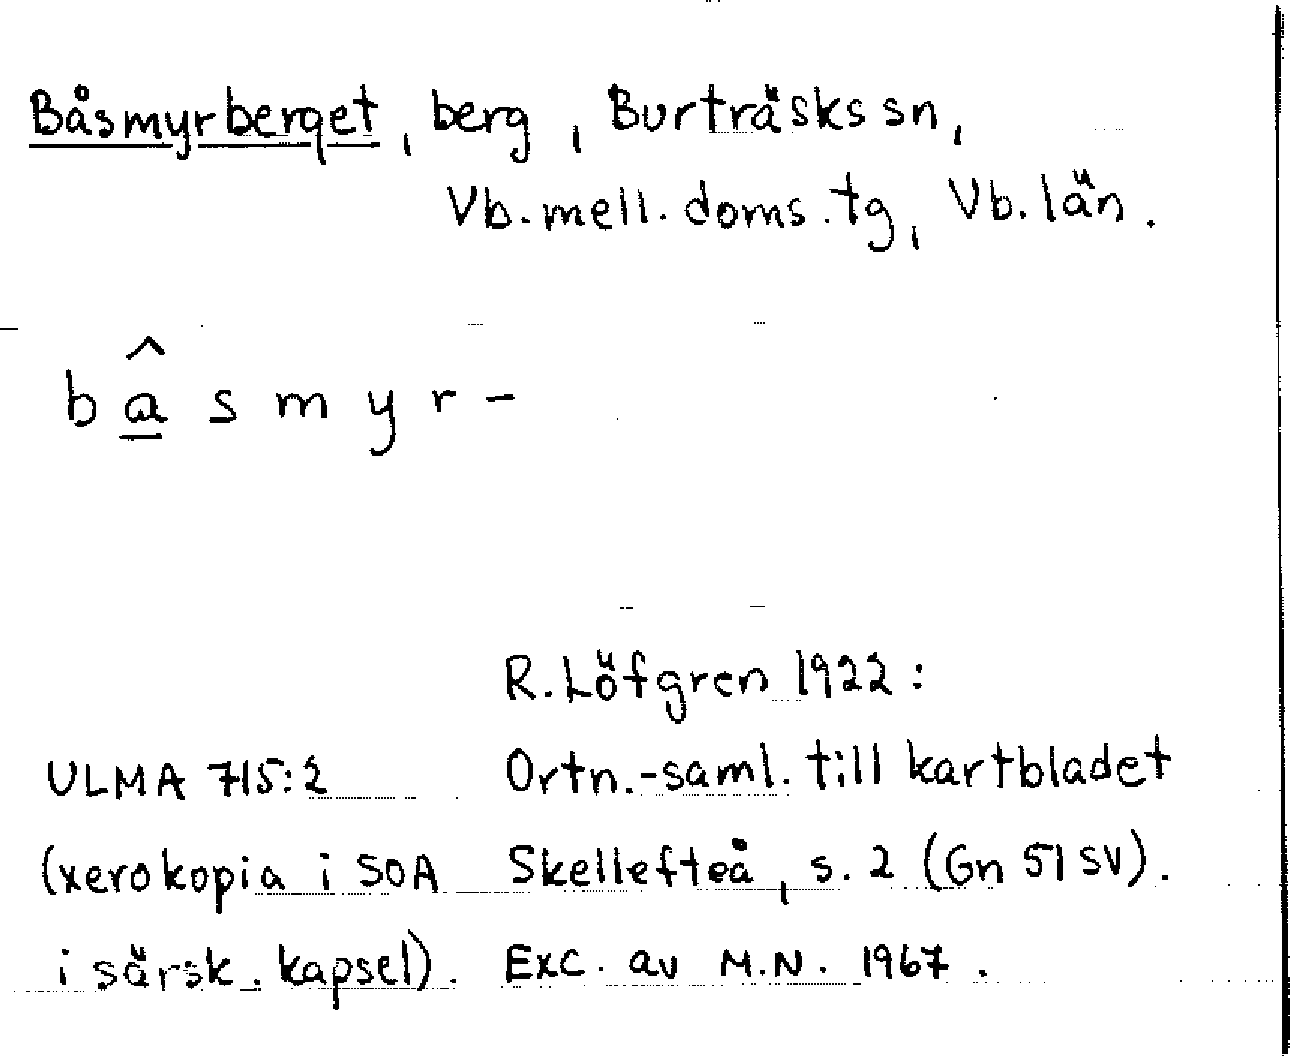 Båsmyrberget, berg, Burträsks sn,
Vb. mell. doms. tg, Vb. län.
bâ̱smyr-
R. Löfgren 1922:
ULMA 715:2 Ortn.-saml. till kartbladet
(xerokopia i SOA Skellefteå, s. 2 (Gn 51 SV).
i särsk. kapsel). Exc. av M.N. 1967.